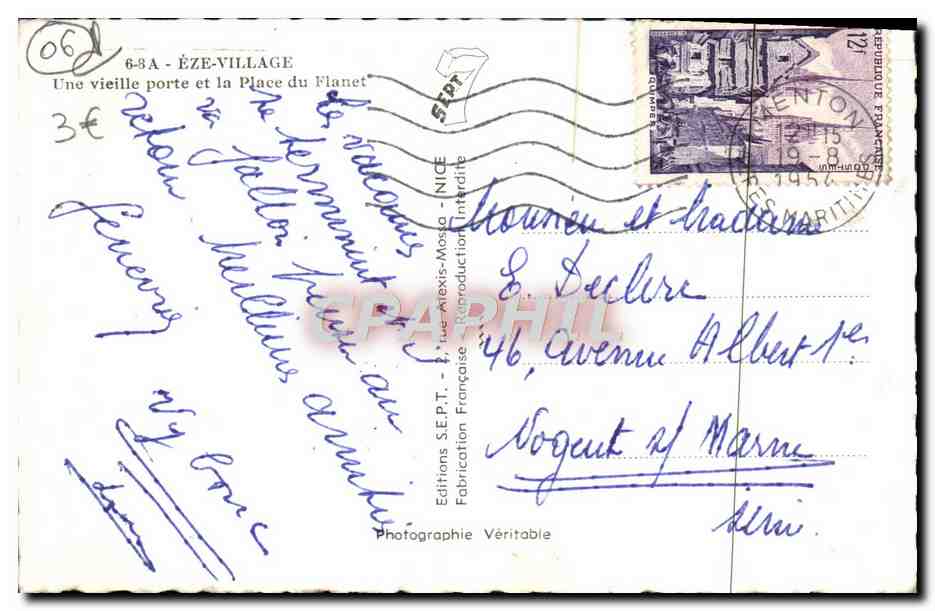 06
6-8A - ÈZE-VILLAGE
Une vieille porte et la Place du Flanet
3€
SEPT
7
Les vacances
se terminent et il
va falloir penser au
retour meilleures amitiés
Editions S.E.P.T. - rue Alexis-Mossa - NICE
Fabrication Française - Reproduction Interdite
Photographie Véritable
REPUBLIQUE FRANÇAISE
12F
QUIMPER
POSTES
MENTON
15
19-8
1954
ALPES MARITIMES
Monsieur et Madame
E. Declere
46, avenue Albert 1er
Nogent s/ Marne
Seine.
CPAPHIL